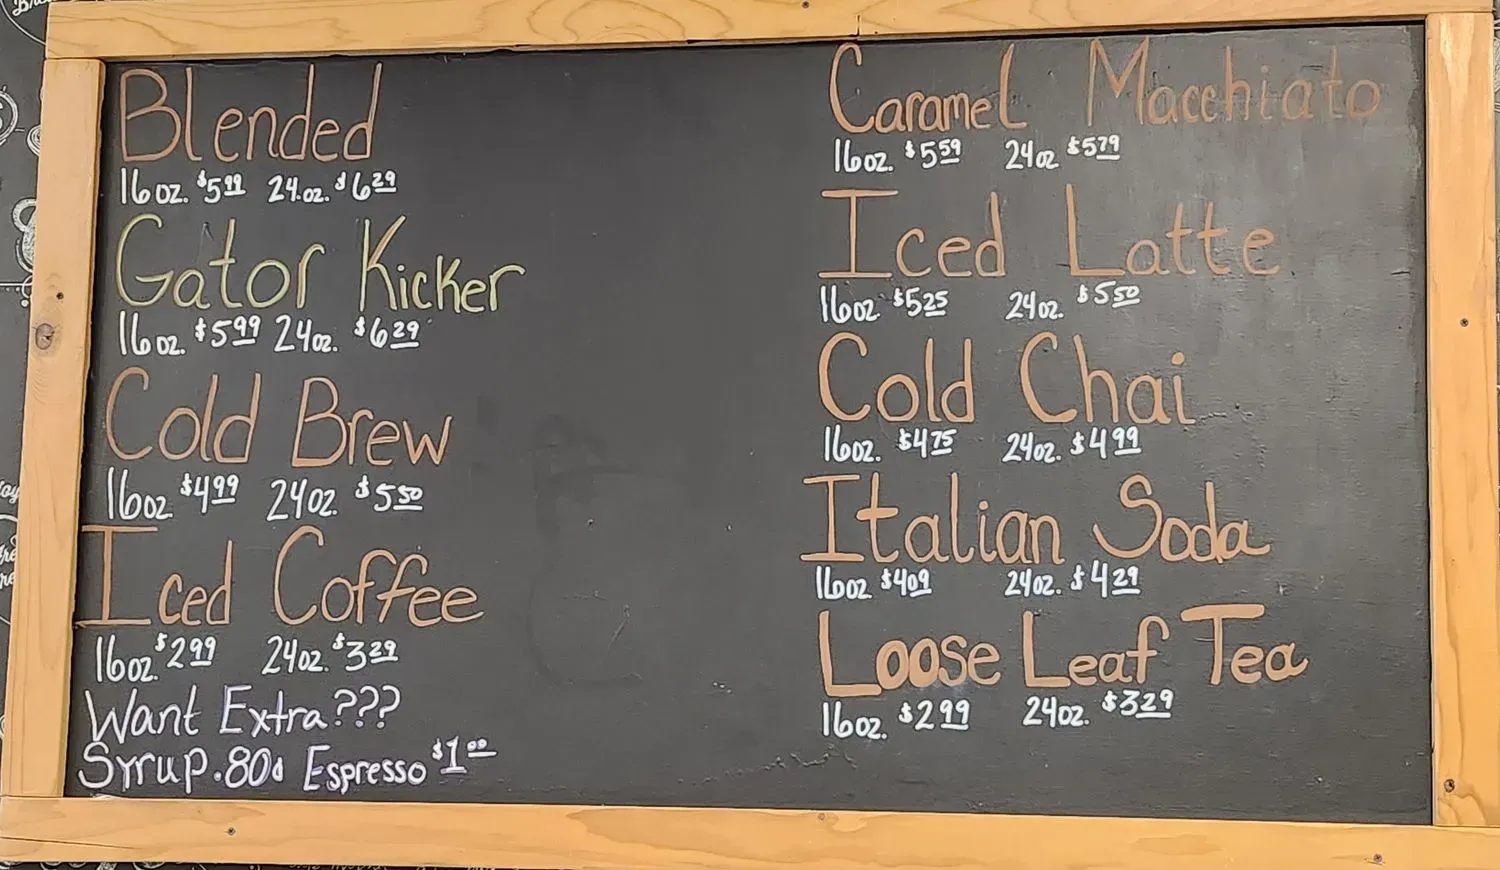 Blended
16oz. $5.99 24.oz. $6.29
Gator Kicker
16oz. $5.99 24oz. $6.29
Cold Brew
16oz. $4.99 24oz. $5.50
Iced Coffee
16oz. $2.99 24oz. $3.29
Want Extra???
Syrup .80¢ Espresso $1.00
Caramel Macchiato
16oz. $5.59 24oz $5.79
Iced Latte
16oz $5.25 24oz. $5.50
Cold Chai
16oz. $4.75 24oz. $4.99
Italian Soda
16oz $4.09 24oz. $4.29
Loose Leaf Tea
16oz. $2.99 24oz. $3.29